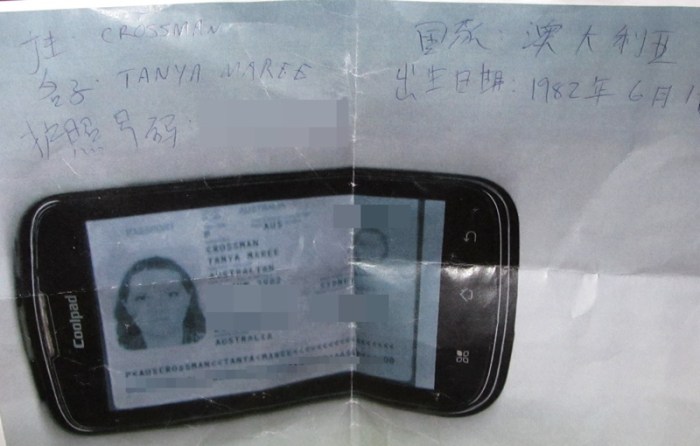 姓: CROSSMAN
名字: TANYA MAREE
护照号码:
国家: 澳大利亚
出生日期: 1982年6月1
Coolpad
PASSPORT
AUSTRALIA
P
AUS
CROSSMAN
TANYA MAREE
AUSTRALIAN
1982
AUSTRALIA
P<AUSCROSSMAN<<TANYA<MAREE<<<<<<<<<<<<<<<<